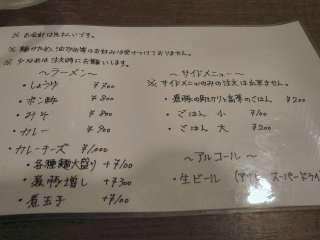 ※ お会計は先払いです。
※ 麺かため、油少な等はお好みは受けつけておりません。
※ 少なめは注文時にお願いします。
～ラーメン～
・しょうゆ ¥700
・ポン酢 ¥800
・みそ ¥800
・カレー ¥900
・カレーチーズ ¥1,000
・各種麺大盛り +¥100
・豚増し +¥300
・煮玉子 +¥100
～サイドメニュー～
※ サイドメニューのみの注文は出来ません。
のごはん ¥200
・ごはん 小 ¥100
・ごはん 大 ¥200
～アルコール～
・生ビール (アサヒ スーパードライ